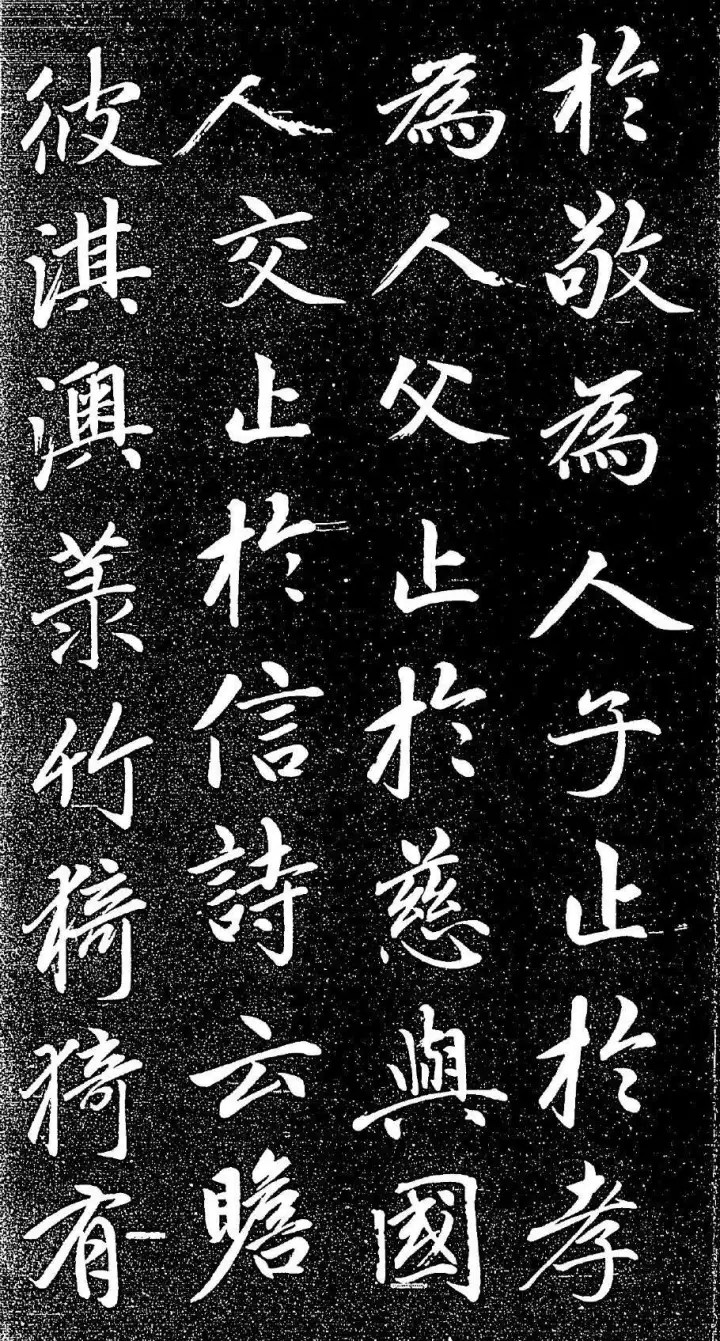 於敬為人子止於孝
為人父止於慈與國
人交止於信詩云瞻
彼淇澳菉竹猗猗有